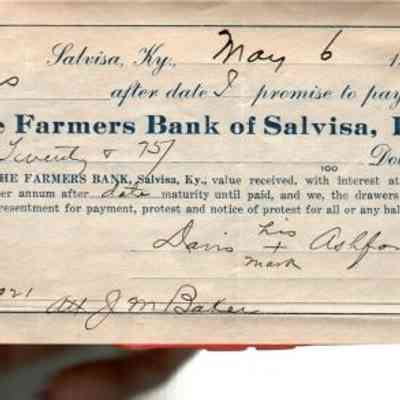 Salvisa, Ky., May 6 1
s after date I promise to pay
e Farmers Bank of Salvisa,
Twenty & 75/
100 Do
HE FARMERS BANK, Salvisa, Ky., value received, with interest at
er annum after date maturity until paid, and we, the drawers
resentment for payment, protest and notice of protest for all or any bal
Davis his Ashfo
+
mark
921
Att J M Baker